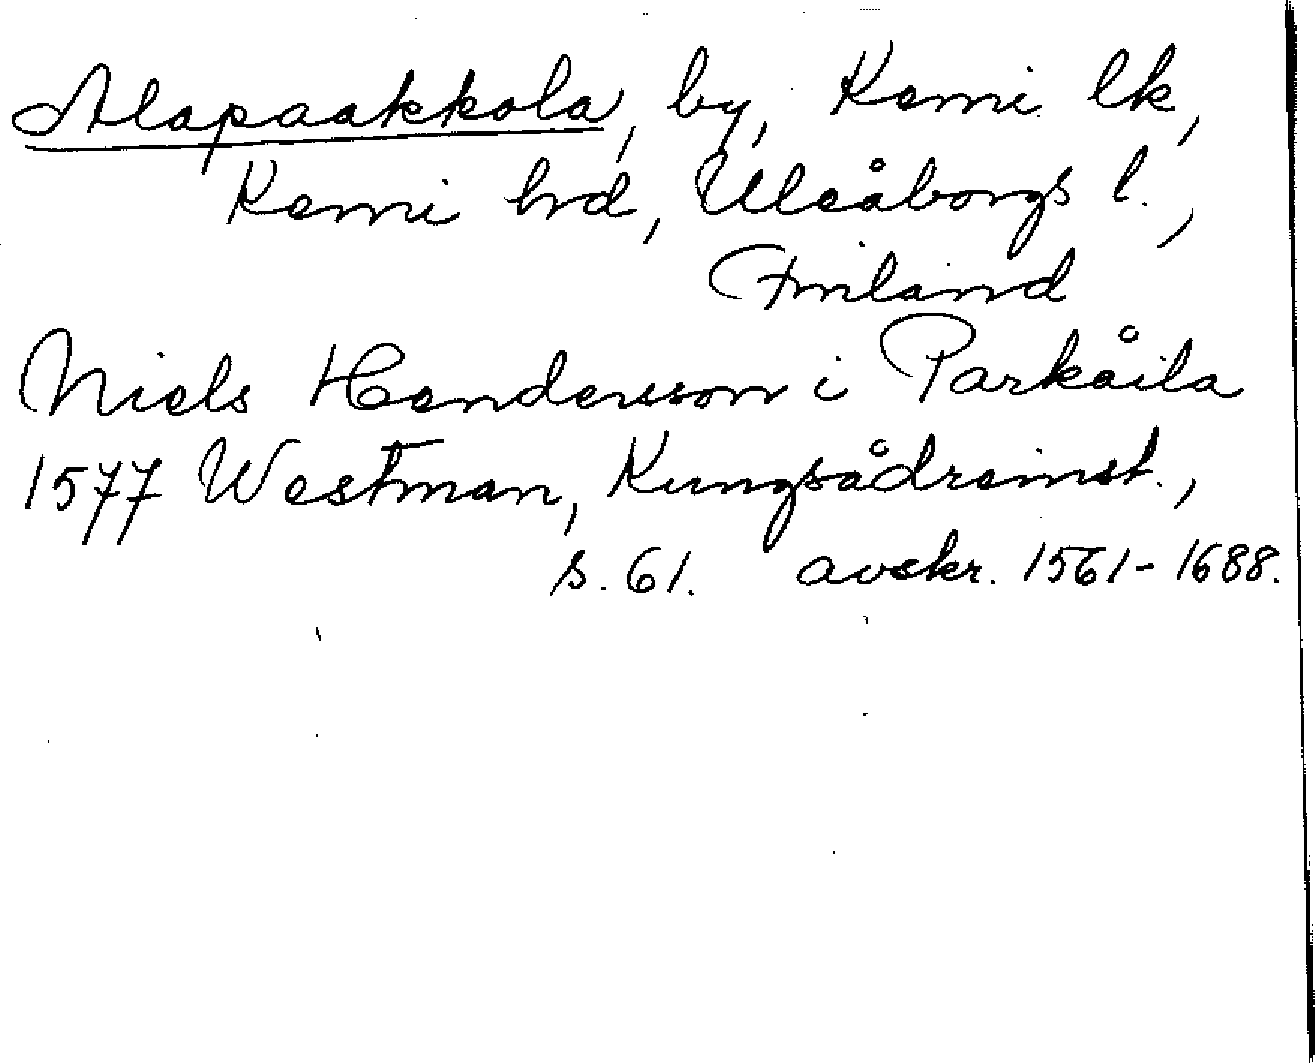 Alapaakkola, by, Kemi lk,
Kemi hrd, Uleåborgs l.,
Finland
Niels Hendersson i Parkåila
1577 Westman, Kungsådreinst.,
s. 61. avskr. 1561-1688.